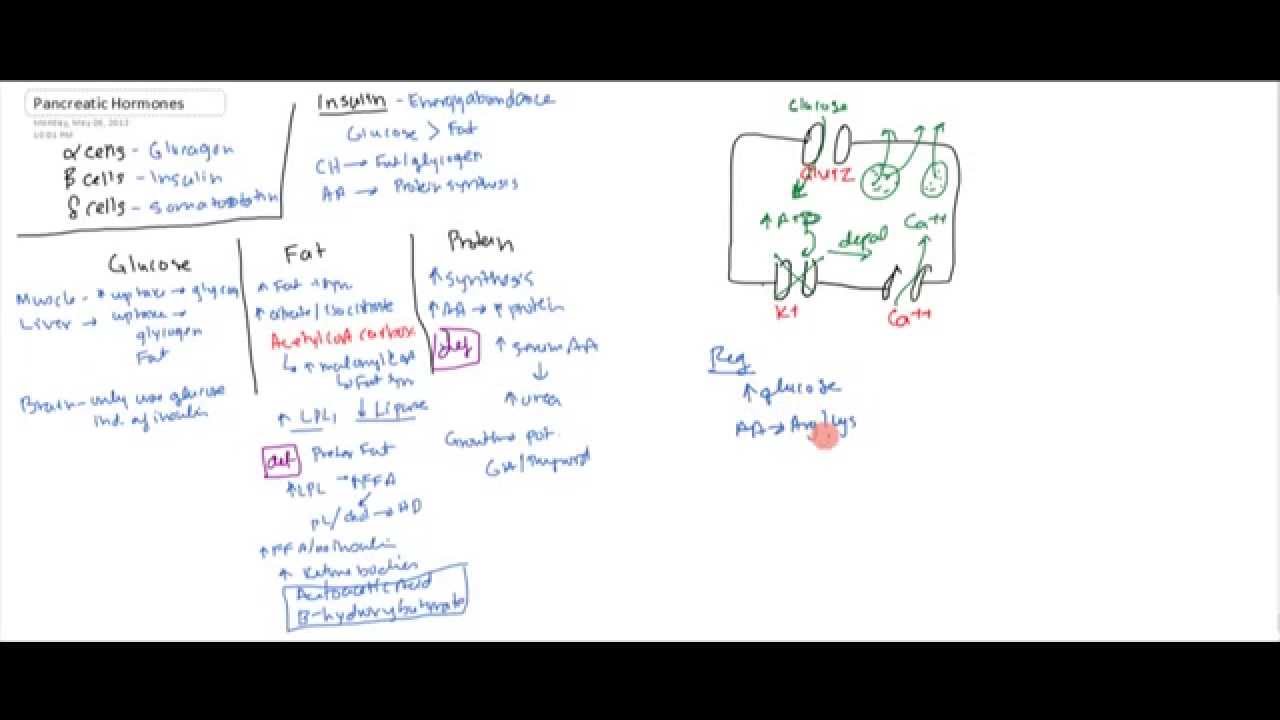 Pancreatic Hormones
Monday, May 20, 2013
10:01 PM
α cells - Glucagon
β cells - Insulin
δ cells - Somatostatin
Insulin - Energy abundance
Glucose > Fat
CH → Fat/glycogen
AA → Protein synthesis
Glucose
Muscle - ↑ uptake → glycogen
Liver → uptake →
glycogen
Fat
Brain - only use glucose
ind. of insulin
Fat
↑ Fat syn
↑ citrate/isocitrate
Acetyl CoA carboxylase
↳ ↑ malonyl CoA
↳ Fat syn
↑ LPL, ↓ Lipase
def Prefer Fat
↑ LPL → ↑ FFA
PL/chol → AD
↑ FFA/no insulin
↑ Ketone bodies
Acetoacetic Acid
B-hydroxybutyrate
Protein
↑ synthesis
↑ AA → ↑ protein
def ↑ serum AA
↓
↑ urea
Growth → pot.
GH/
Glucose
Glut2
↑ ATP
depol
Ca++
K+
Ca++
Reg
↑ glucose
AA → Arg/Lys